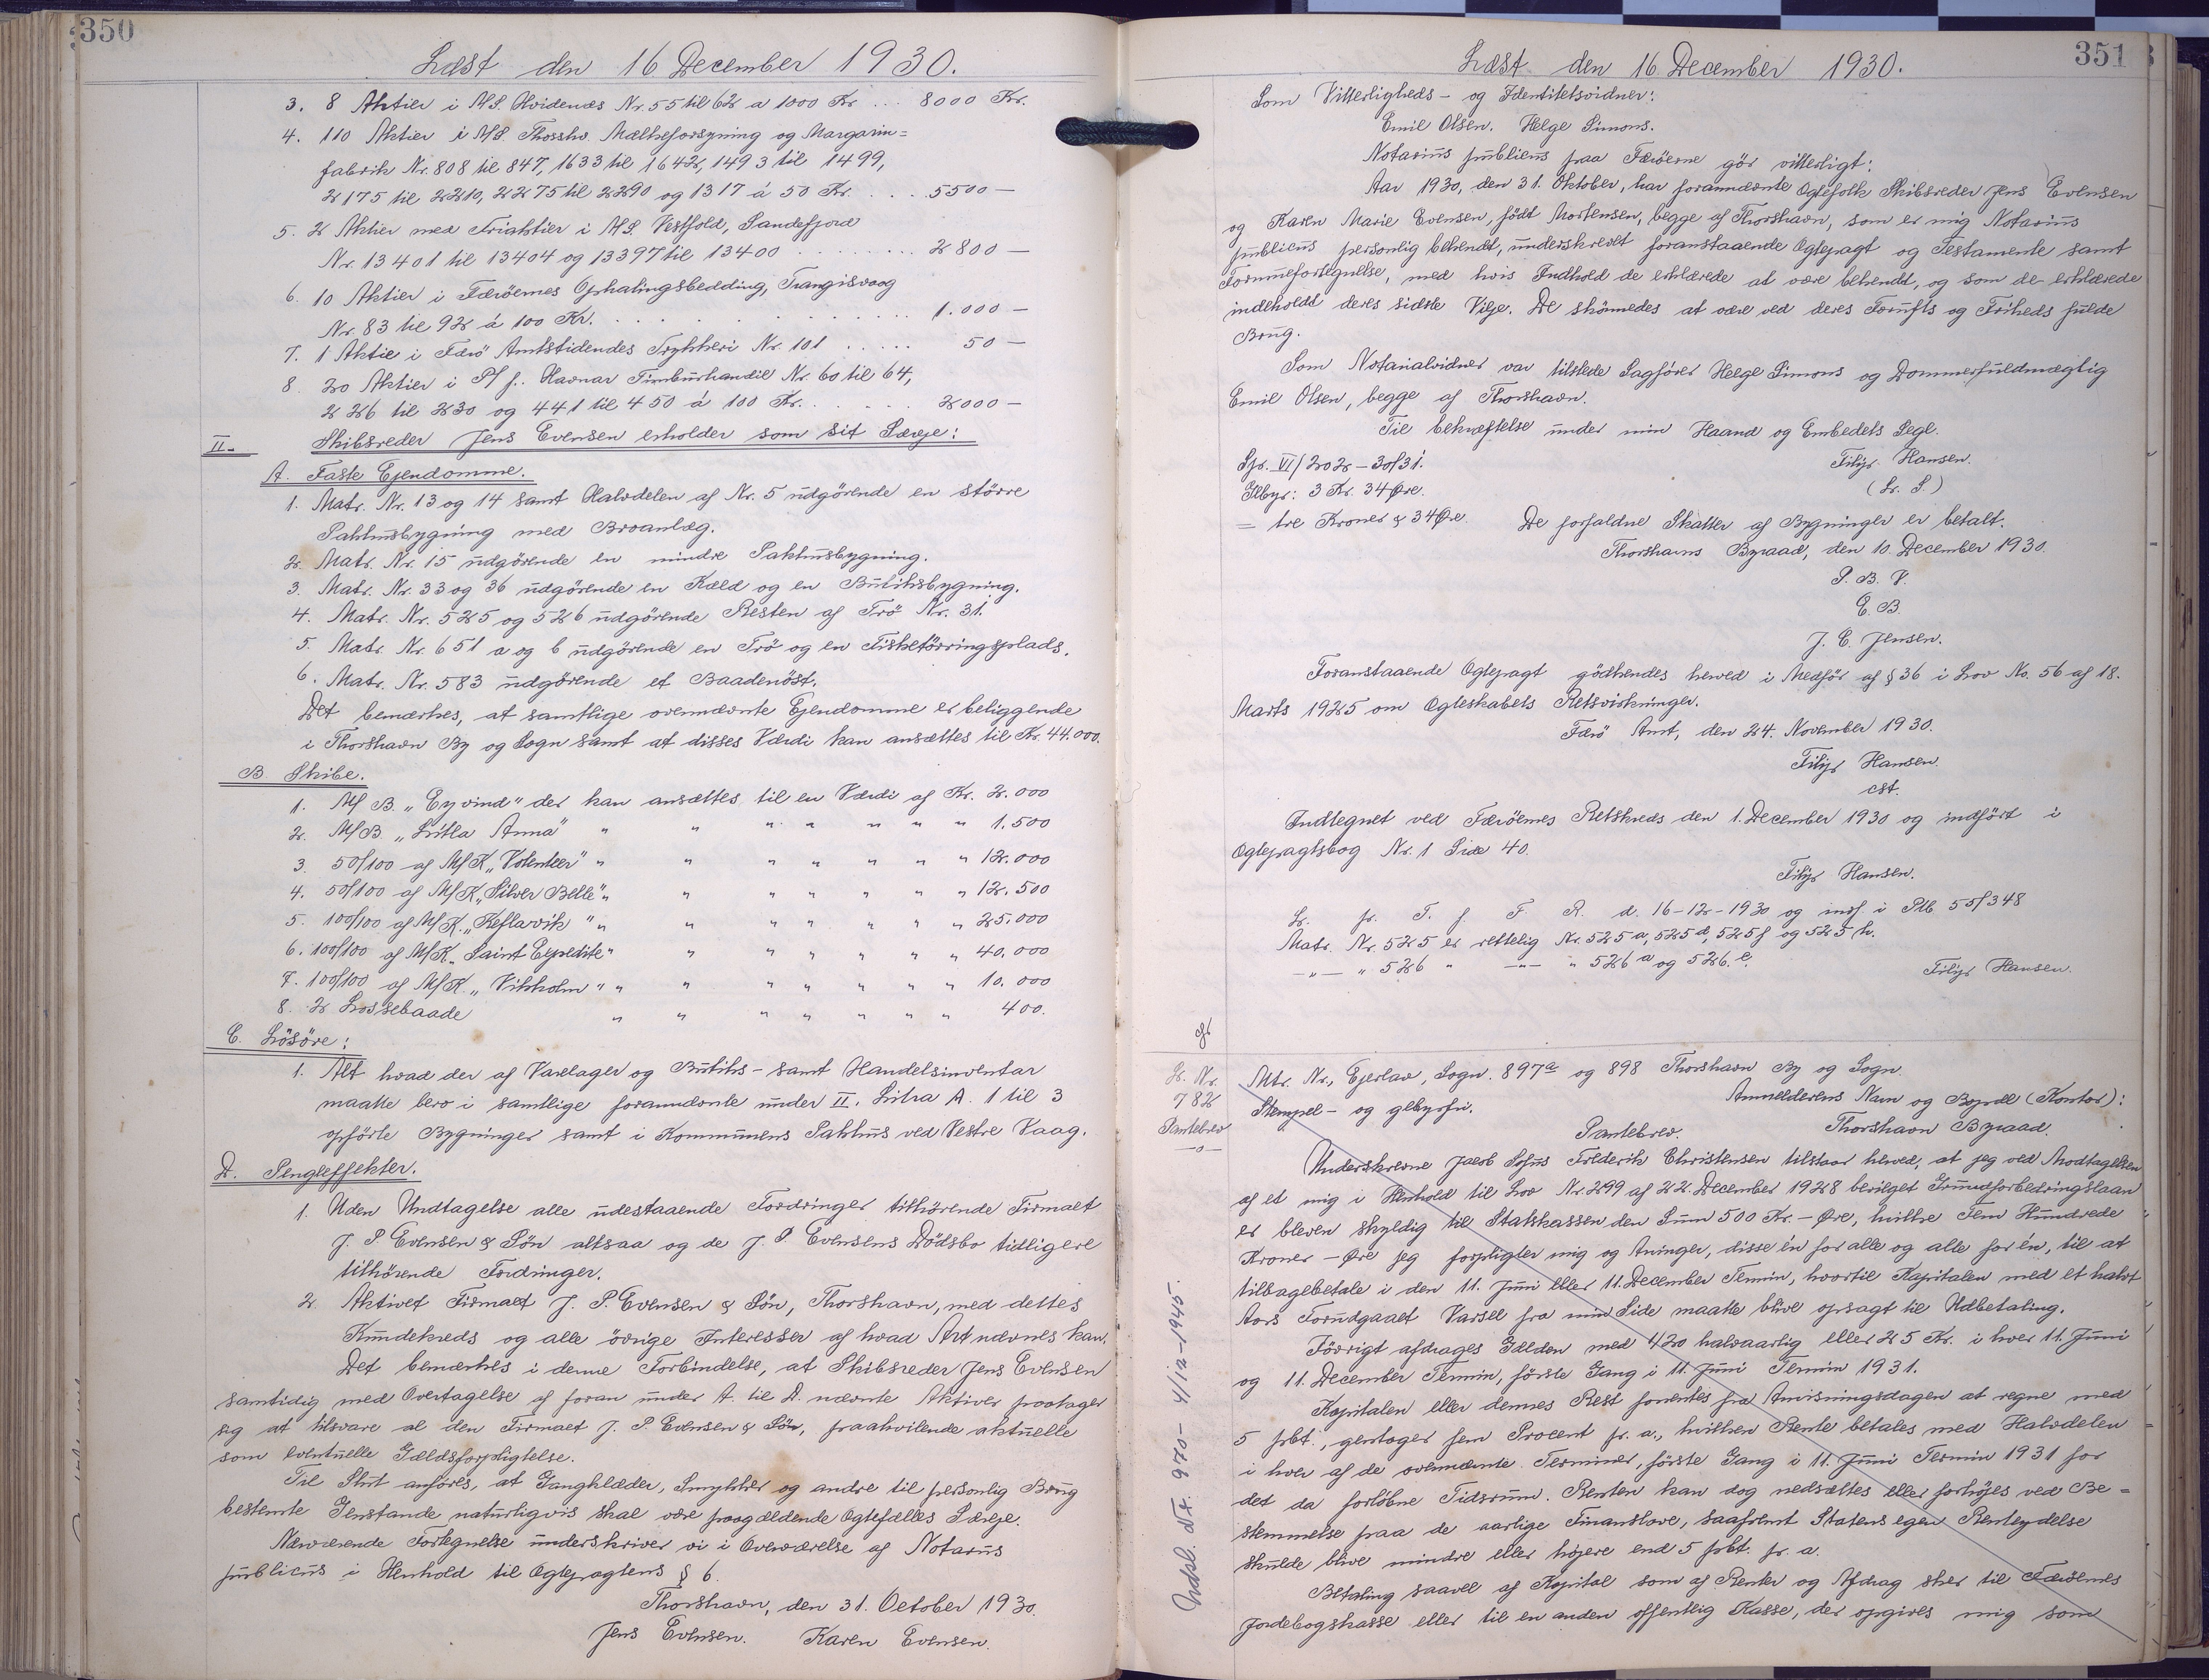 350
Læst den 16 December 1930.
3. 8 Aktier i A/S. Hvidenæs Nr. 55 til 62 a 1000 Kr ... 8000 Kr.
4. 110 Aktier i A/S. Thorshv. Mælkeforsyning og Margarin=
fabrik Nr. 808 til 847, 1633 til 1642, 1493 til 1499,
2175 til 2210, 2275 til 2290 og 1317 á 50 Kr. . . . 5500 —
5. 2 Aktier med Friaktier i A/S. Vestfold, Sandefjord
Nr. 13401 til 13404 og 13397 til 13400 . . . . . . . . 2800 —
6. 10 Aktier i Færöernes Ophalingsbedding, Trangisvaag
Nr. 83 til 92 á 100 Kr. . . . . . . . . . . . . 1.000 —
7. 1 Aktie i Færö Amtstidendes Trykkeri Nr. 101 . . . . . 50 —
8. 20 Aktier i P/f. Havnar Timburhandil Nr. 60 til 64,
226 til 230 og 441 til 450 á 100 Kr. . . . . . 2000 —
II. Skibsreder Jens Evensen erholder som sit Særeje:
A. Faste Ejendomme.
1. Matr. Nr. 13 og 14 samt Halvdelen af Nr. 5 udgörende en större
Pakhusbygning med Broanlæg.
2. Matr. Nr. 15 udgörende en mindre Pakhusbygning.
3. Matr. Nr. 33 og 36 udgörende en Kæld og en Butiksbygning.
4. Matr. Nr. 525 og 526 udgörende Resten af Trö Nr. 31.
5. Matr. Nr. 651 a og b udgörende en Trö og en Fisketörringsplads.
6. Matr. Nr. 583 udgörende et Baadenöst.
Det bemærkes, at samtlige ovennævnte Ejendomme er beliggende
i Thorshavn By og Sogn samt at disses Værdi kan ansættes til Kr. 44.000.
B. Skibe.
1. M/B. „Eyvind" der kan ansættes til en Værdi af Kr. 2.000
2. M/B „Litla Anna" " " " " " " " 1.500
3. 50/100 af M/K „Volenteer" " " " " " " " 12.000
4. 50/100 af M/K „Silver Belle" " " " " " " " 12.500
5. 100/100 af M/K. „Keflavik" " " " " " " " 25.000
6. 100/100 af M/K „Saint Expedite" " " " " " " 40.000
7. 100/100 af M/K. „Vikholm" " " " " " " " 10.000
8. 2 Lossebaade " " " " " " " 400.
C. Lösöre:
1. Alt hvad der af Varelager og Butiks- samt Handelsinventar
maatte bero i samtlige forannævnte under II. Litra A. 1 til 3
opförte Bygninger samt i Kommunens Pakhus ved Vestre Vaag.
D. Pengeeffekter.
1. Uden Undtagelse alle udestaaende Fordringer tilhörende Firmaet
J. P. Evensen & Sön altsaa og de J. P. Evensens Dödsbo tidligere
tilhörende Fordringer.
2. Aktivet Firmaet J. P. Evensen & Sön, Thorshavn, med dettes
Kundekreds og alle övrige Interesser af hvad Art nævnes kan.
Det bemærkes i denne Forbindelse, at Skibsreder Jens Evensen
samtidig med Overtagelse af foran under A. til D. nævnte Aktiver paatager
sig at tilsvare al den Firmaet J. P. Evensen & Sön, paahvilende aktuelle
som eventuelle Gældsforpligtelse.
Til Slut anföres, at Gangklæder, Smykker og andre til personlig Brug
bestemte Genstande naturligvis skal være paagældende Ægtefælles Særeje.
Nærværende Fortegnelse underskriver vi i Overværelse af Notarius
publicus i Henhold til Ægtepagtens § 6.
Thorshavn, den 31. October 1930.
Jens Evensen. Karen Evensen.
351
Læst den 16 December 1930.
Som Vitterligheds- og Identitetsvidner:
Emil Olsen. Helge Simons.
Notarius publicus paa Færöerne gör vitterligt:
Aar 1930, den 31. Oktober, har forannævnte Ægtefolk Skibsreder Jens Evensen
og Karen Marie Evensen, födt Mortensen, begge af Thorshavn, som er mig Notarius
publicus personlig bekendt, underskrevet foranstaaende Ægtepagt og Testamente samt
Formuefortegnelse, med hvis Indhold de erklærede at være bekendt, og som de erklærede
indeholdt deres sidste Vilje. De skönnedes at være ved deres Fornufts og Friheds fulde
Brug.
Som Notarialvidner var tilstede Sagförer Helge Simons og Dommerfuldmægtig
Emil Olsen, begge af Thorshavn.
Til bekræftelse under min Haand og Embedets Segl.
Spr. VI/202 - 30/31. Filip Hansen.
Glbyr: 3 Kr. 34 Øre. (L. S.)
= tre Kroner & 34 Øre. De forfaldne Skatter af Bygninger er betalt.
Thorshavns Byraad, den 10. December 1930.
P. B. V.
E. B.
J. C. Jensen.
Foranstaaende Ægtepagt godkendes herved i Medför af § 36 i Lov No. 56 af 18.
Marts 1925 om Ægteskabets Retsvirkninger.
Færö Amt, den 24. November 1930.
Filip Hansen.
cst.
Indtegnet ved Færöernes Retskreds den 1. December 1930 og indfört i
Ægtepagtsbog Nr. 1 Side 40.
Filip Hansen.
L. p. T. f. F. R. d. 16-12-1930 og indf. i Ptb 55/348
Matr. Nr. 525 er rettelig Nr. 525a, 525d, 525f og 525 h.
—"— " 526 " —"— " 526a og 526.e.
Filip Hansen.
L. Nr.
782
Pantebrev
—o—
Mtr. Nr., Ejerlav, Sogn. 897a og 898 Thorshavn By og Sogn.
Stempel- og glbyrfri. Anmelderens Navn og Bopæl (Kontor):
Pantebrev. Thorshavn Byraad.
Underskrevne Jacob Sofus Frederik Christensen tilstaar herved, at jeg ved Modtagelsen
af et mig i Henhold til Lov Nr. 299 af 22. December 1928 bevilget Grundforbedringslaan
er bleven skyldig til Statskassen den Sum 500 Kr. - Øre, hvilke Fem Hundrede
Kroner - Øre jeg forpligter mig og Arvinger, disse én for alle og alle for én, til at
tilbagebetale i den 11. Juni eller 11. December Termin, hvortil Kapitalen med et halvt
Aars Forudgaaet Varsel fra min Side maatte blive opsagt til Udbetaling.
Iövrigt afdrages Gælden med 1/20 halvaarlig eller 25 Kr. i hver 11. Juni
og 11. December Termin, förste Gang i 11. Juni Termin 1931.
Kapitalen eller dennes Rest forrentes fra Anvisningsdagen at regne med
5 pCt., gentager fem Procent p. a., hvilken Rente betales med Halvdelen
i hver af de ovennævnte Terminer, förste Gang i 11. Juni Termin 1931 for
det da forlöbne Tidsrum. Renten kan dog nedsættes eller forhöjes ved Be=
stemmelse paa de aarlige Finanslove, saafremt Statens egen Renteydelse
skulde blive mindre eller höjere end 5 pCt. p. a.
Betaling saavel af Kapital som af Renter og Afdrag sker til Færöernes
Jordebogskasse eller til en anden offentlig Kasse, der opgives mig som
Udsl. Nr. 970 - 4/12-1945.